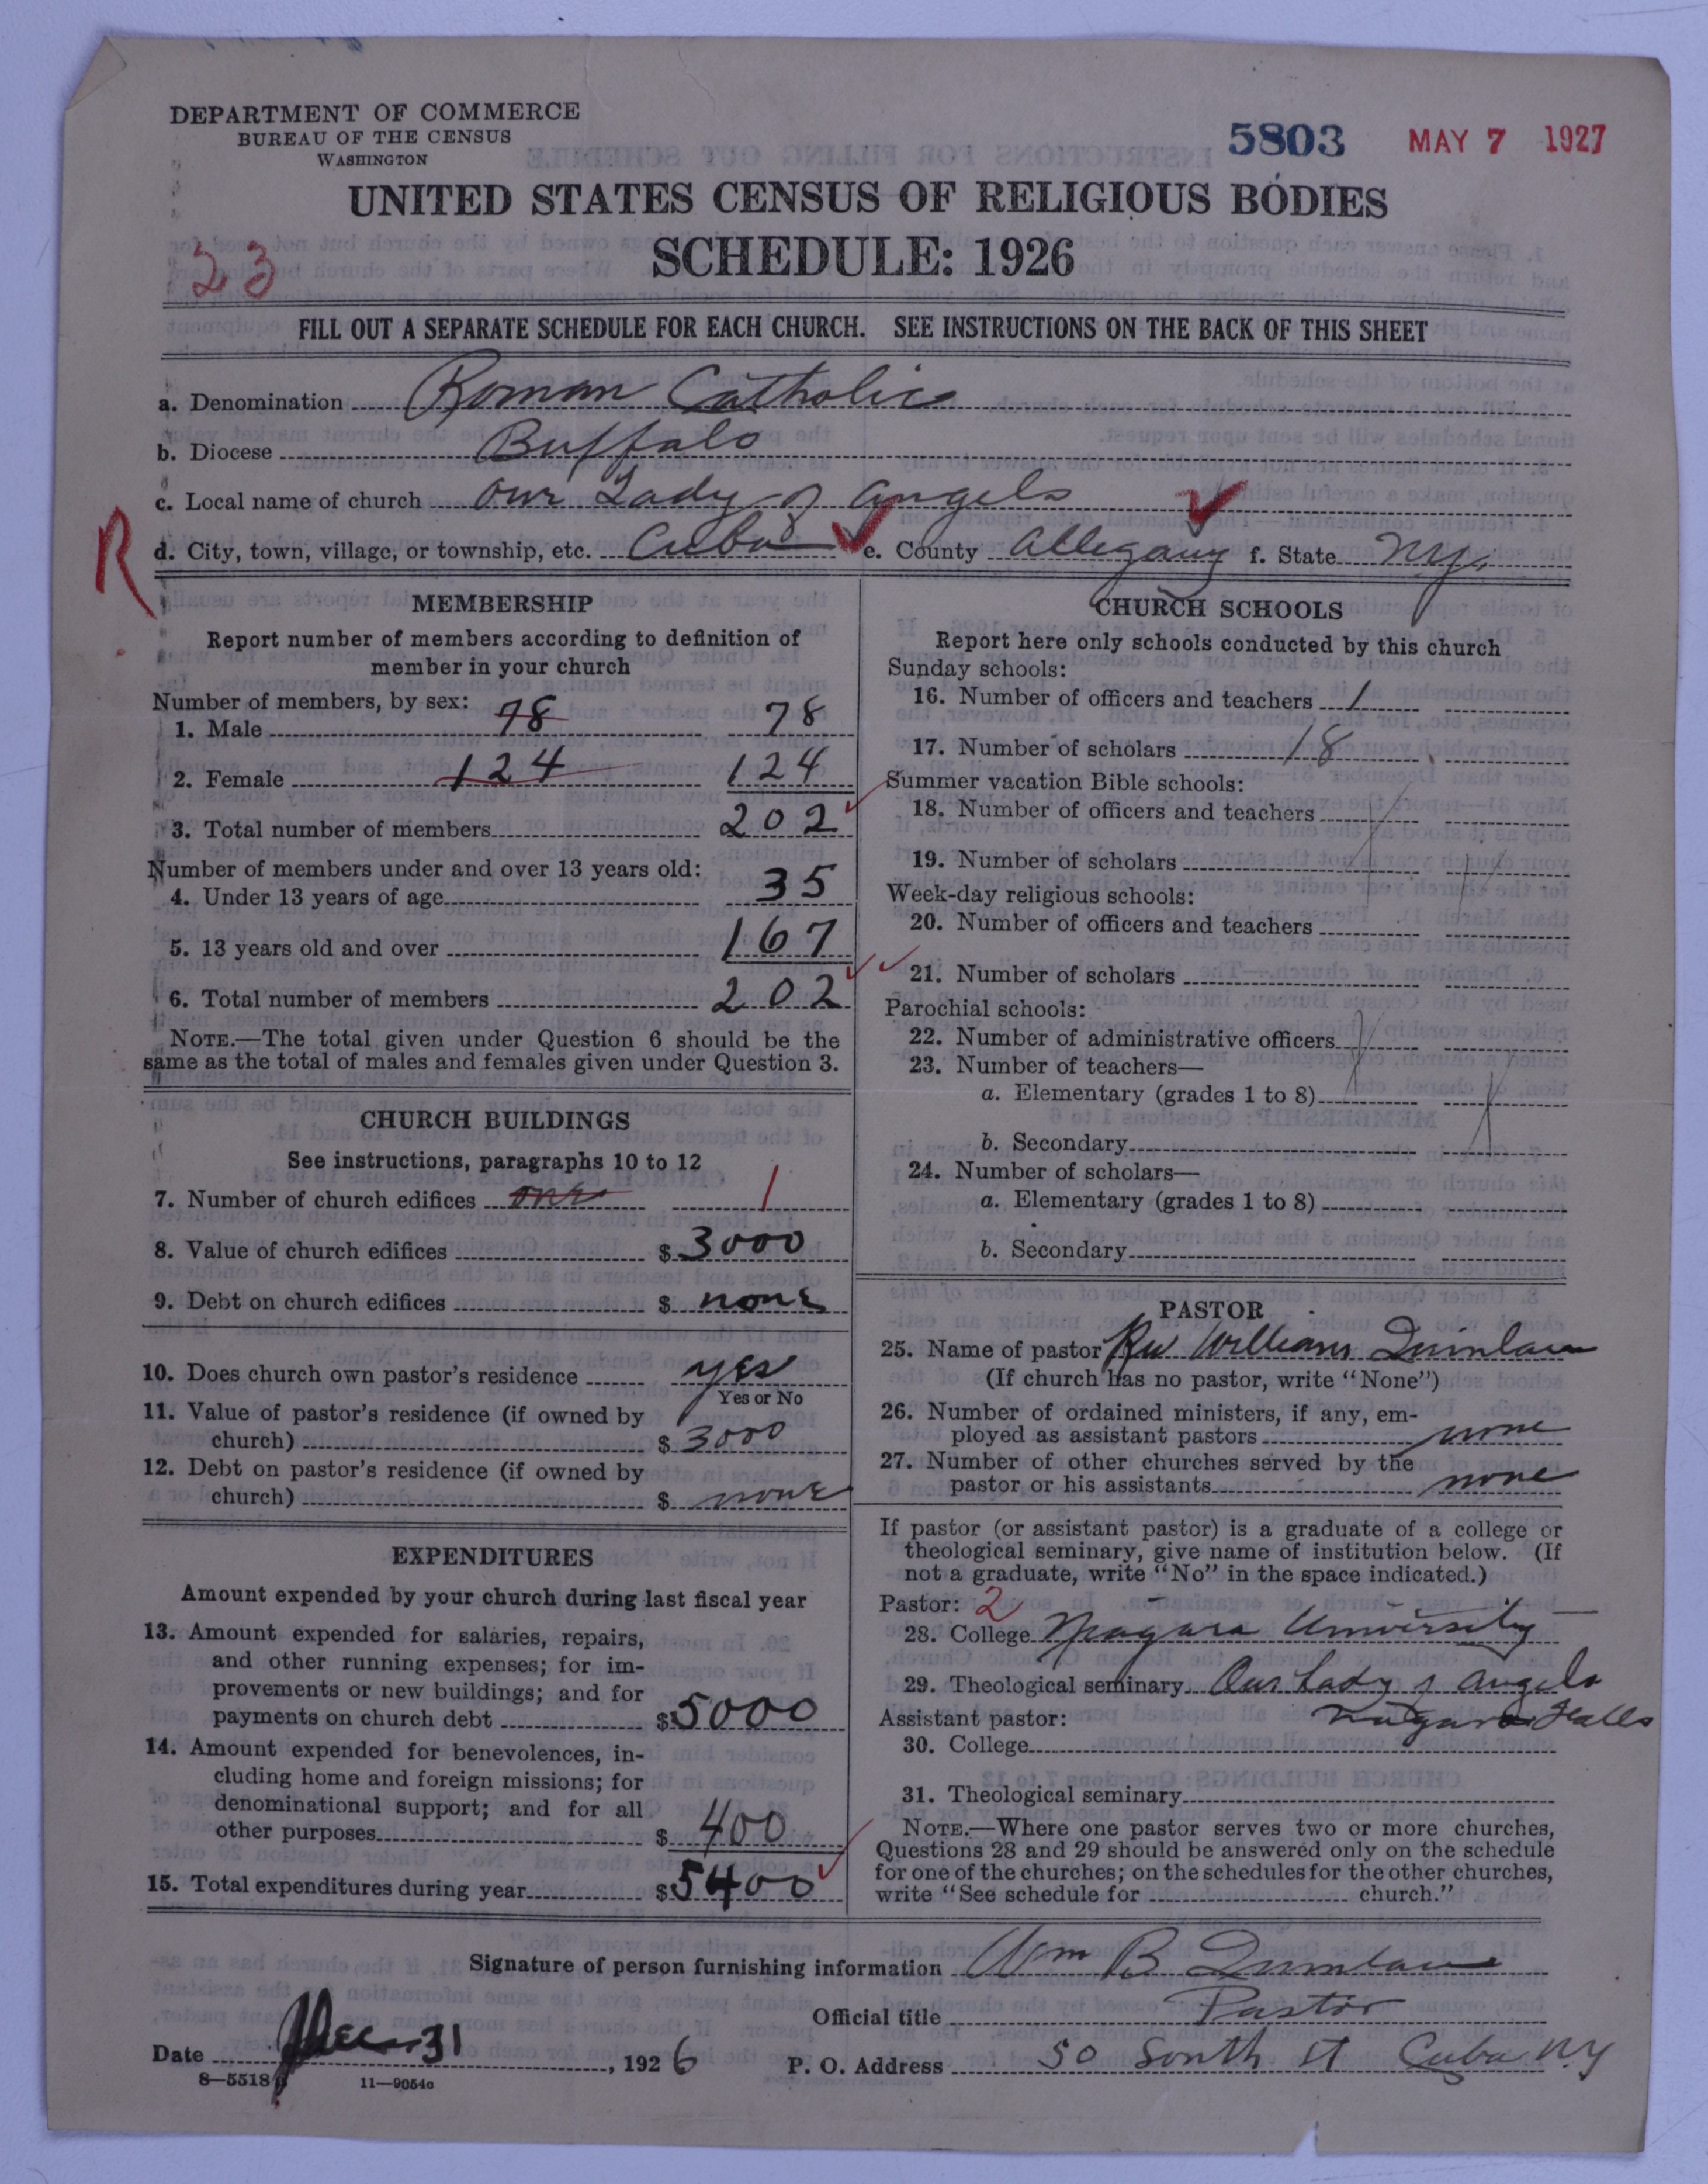 DEPARTMENT OF COMMERCE
BUREAU OF THE CENSUS
WASHINGTON
5803 MAY 7 1927
UNITED STATES CENSUS OF RELIGIOUS BODIES
SCHEDULE: 1926
23
FILL OUT A SEPARATE SCHEDULE FOR EACH CHURCH. SEE INSTRUCTIONS ON THE BACK OF THIS SHEET
a. Denomination Roman Catholic
b. Diocese Buffalo
c. Local name of church Our Lady of Angels
R
d. City, town, village, or township, etc. Cuba e. County Allegany f. State N.Y.
MEMBERSHIP
Report number of members according to definition of
member in your church
Number of members, by sex:
1. Male 78 78
2. Female 124 124
3. Total number of members 202
Number of members under and over 13 years old:
4. Under 13 years of age 35
5. 13 years old and over 167
6. Total number of members 202
NOTE.—The total given under Question 6 should be the
same as the total of males and females given under Question 3.
CHURCH BUILDINGS
See instructions, paragraphs 10 to 12
7. Number of church edifices one 1
8. Value of church edifices $ 3000
9. Debt on church edifices $ none
10. Does church own pastor's residence yes
Yes or No
11. Value of pastor's residence (if owned by
church) $ 3000
12. Debt on pastor's residence (if owned by
church) $ none
EXPENDITURES
Amount expended by your church during last fiscal year
13. Amount expended for salaries, repairs,
and other running expenses; for im-
provements or new buildings; and for
payments on church debt $ 5000
14. Amount expended for benevolences, in-
cluding home and foreign missions; for
denominational support; and for all
other purposes $ 400
15. Total expenditures during year $ 5400
CHURCH SCHOOLS
Report here only schools conducted by this church
Sunday schools:
16. Number of officers and teachers 1
17. Number of scholars 18
Summer vacation Bible schools:
18. Number of officers and teachers
19. Number of scholars
Week-day religious schools:
20. Number of officers and teachers
21. Number of scholars
Parochial schools:
22. Number of administrative officers
23. Number of teachers—
a. Elementary (grades 1 to 8)
b. Secondary
24. Number of scholars—
a. Elementary (grades 1 to 8)
b. Secondary
PASTOR
25. Name of pastor Rev William Quinlan
(If church has no pastor, write "None")
26. Number of ordained ministers, if any, em-
ployed as assistant pastors none
27. Number of other churches served by the
pastor or his assistants none
If pastor (or assistant pastor) is a graduate of a college or
theological seminary, give name of institution below. (If
not a graduate, write "No" in the space indicated.)
Pastor: 2
28. College Niagara University
29. Theological seminary Our Lady of Angels
Assistant pastor: Niagara Falls
30. College
31. Theological seminary
NOTE.—Where one pastor serves two or more churches,
Questions 28 and 29 should be answered only on the schedule
for one of the churches; on the schedules for the other churches,
write "See schedule for church."
Signature of person furnishing information Wm B Quinlan
Official title Pastor
Date Dec 31, 1926 P. O. Address 50 South St Cuba N.Y
8—5518 11—9054a